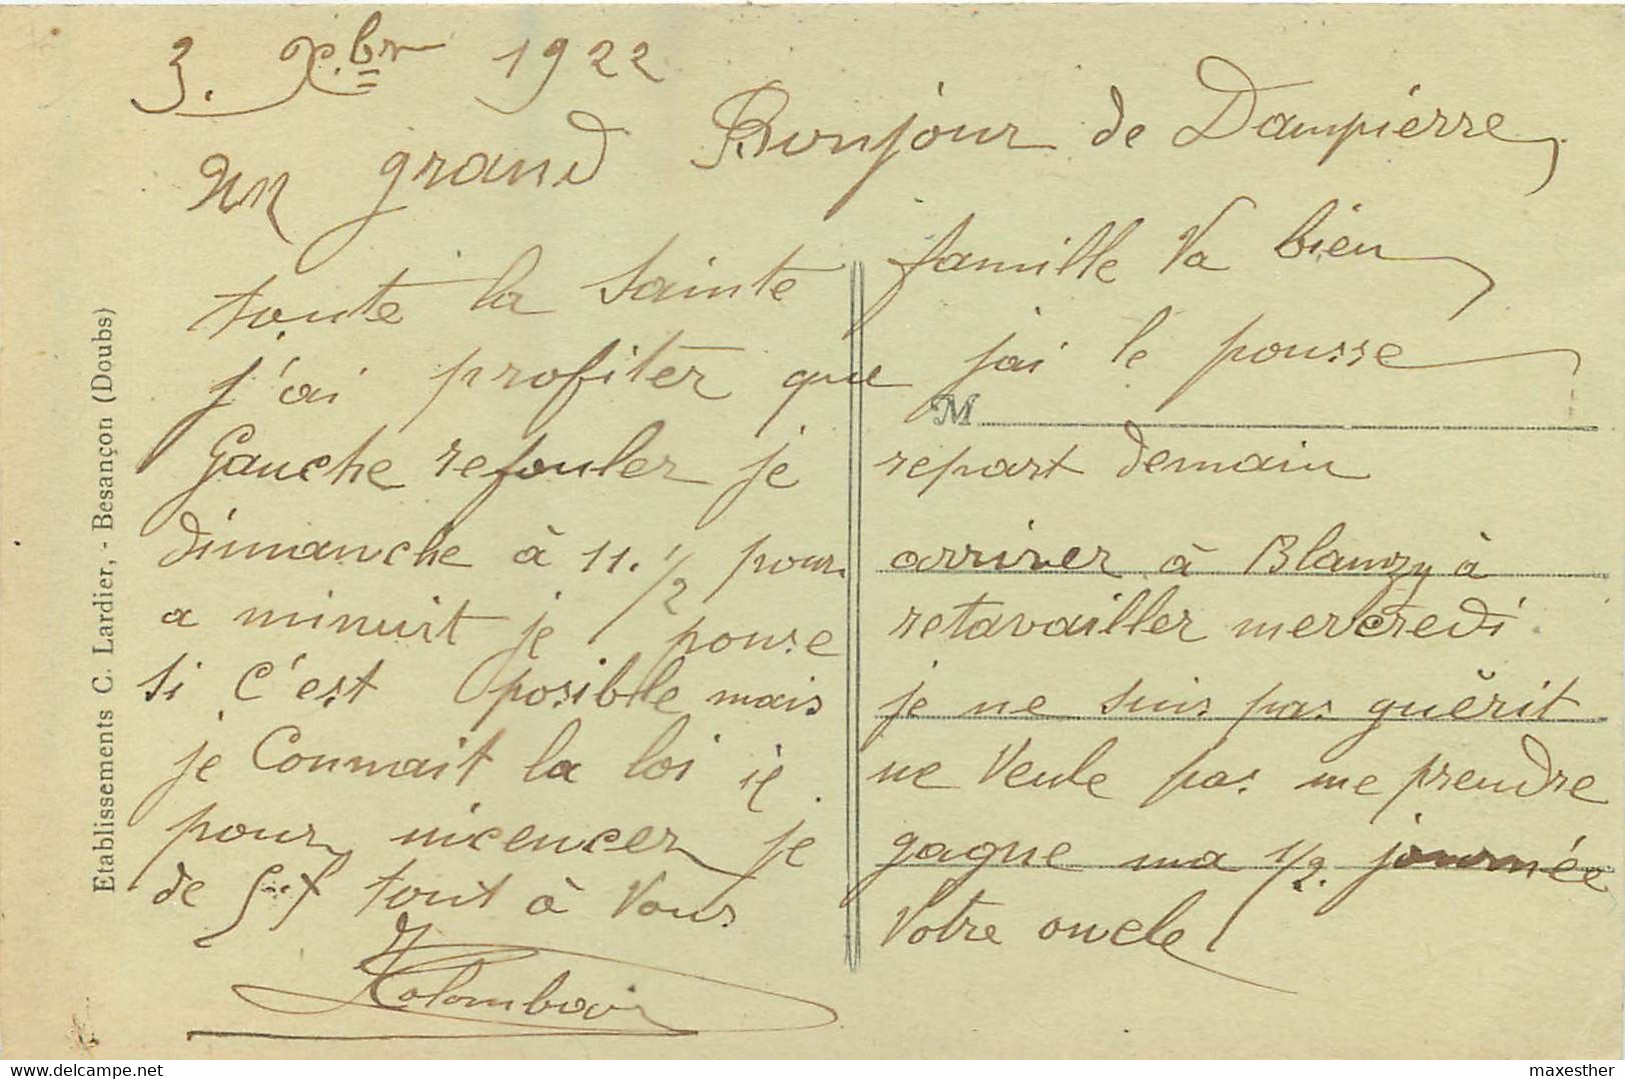 3. Xbre 1922
un grand Bonjour de Dampierre,
toute la Sainte famille Va bien
j'ai profiter que jai le pousse
Gauche refouler je repart demain
dimanche à 11. 1/2 pour arriver à Blanzy à
a minuit je pouse retavailler mercredi.
si c'est posible mais je ne suis pas guérit
je Connait la loi il ne Veule pas me prendre
pour mcencer je gagne ma 1/2. journée
de tout à Vous Votre oncle
M
Etablissements C. Lardier, - Besançon (Doubs)
maxesther